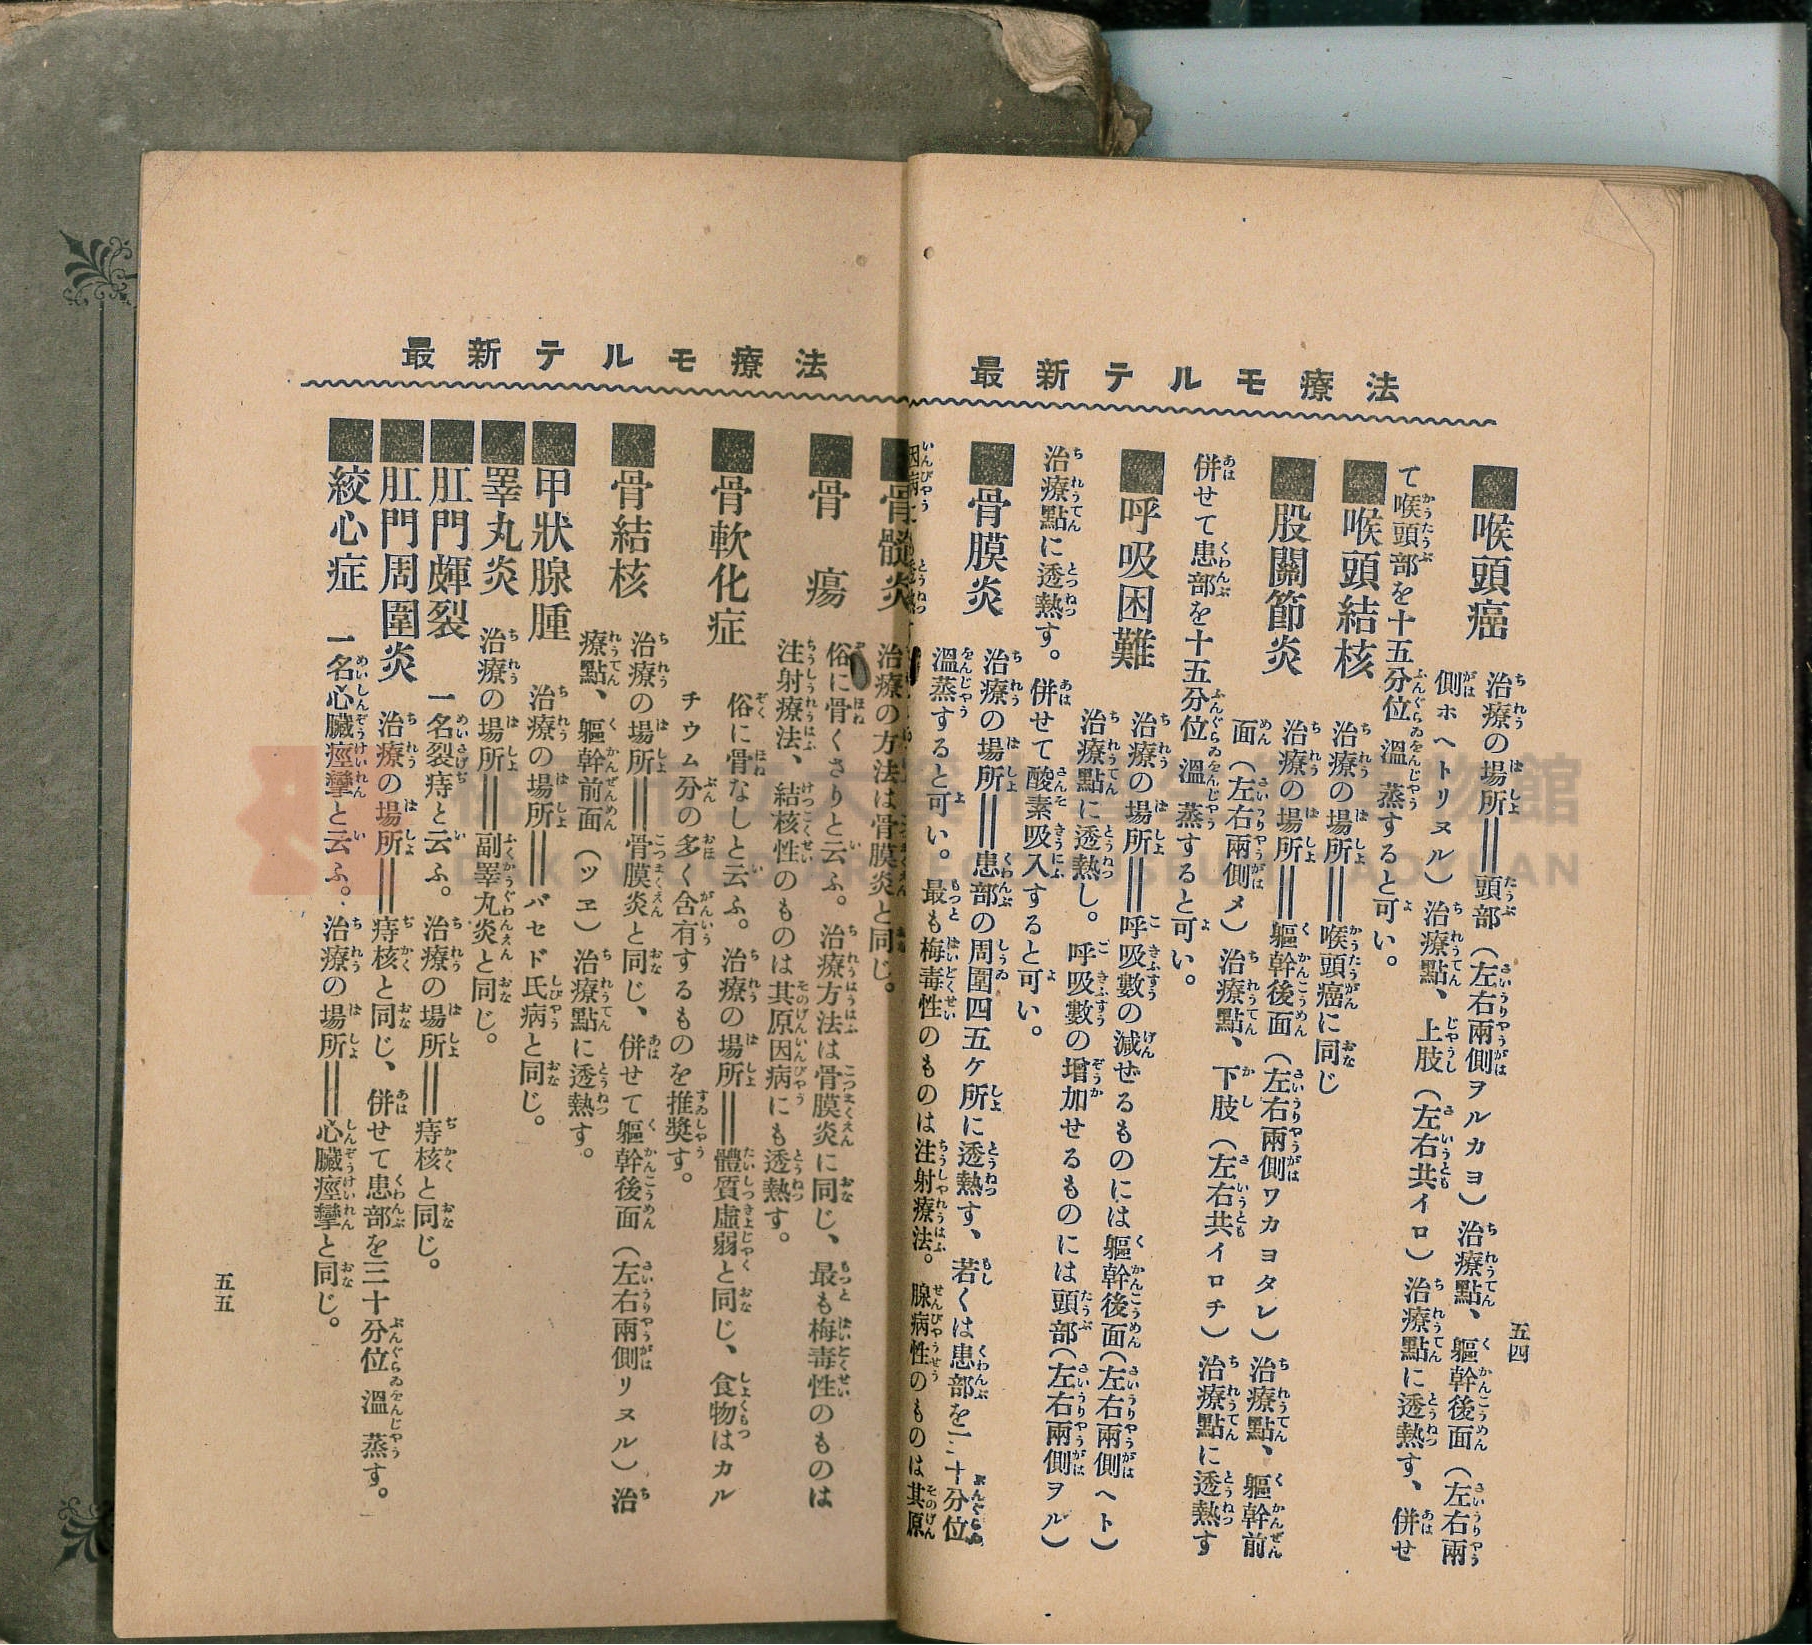 最新テルモ療法
五四
■喉頭癌 治療の場所‖頭部（左右兩側ヲルカヨ）治療點、軀幹後面（左右兩
側ホヘトリヌル）治療點、上肢（左右共イロ）治療點に透熱す、併せ
て喉頭部を十五分位溫蒸すると可い。
■喉頭結核 治療の場所‖喉頭癌に同じ
■股關節炎 治療の場所‖軀幹後面（左右兩側ワカヨタレ）治療點、軀幹前
面（左右兩側メ）治療點、下肢（左右共イロチ）治療點に透熱す
併せて患部を十五分位溫蒸すると可い。
■呼吸困難 治療の場所‖呼吸數の減せるものには軀幹後面（左右兩側ヘト）
治療點に透熱し。呼吸數の增加せるものには頭部（左右兩側ヲル）
治療點に透熱す。併せて酸素吸入すると可い。
■骨膜炎 治療の場所‖患部の周圍四五ケ所に透熱す、若くは患部を二十分位
溫蒸すると可い。最も梅毒性のものは注射療法。腺病性のものは其原
因病にも透熱す
最新テルモ療法
■骨髓炎 治療の方法は骨膜炎と同じ。
■骨瘍 俗に骨くさりと云ふ。治療方法は骨膜炎に同じ、最も梅毒性のものは
注射療法、結核性のものは其原因病にも透熱す。
■骨軟化症 俗に骨なしと云ふ。治療の場所‖體質虛弱と同じ、食物はカル
チウム分の多く含有するものを推奬す。
■骨結核 治療の場所‖骨膜炎と同じ、併せて軀幹後面（左右兩側リヌル）治
療點、軀幹前面（ツヱ）治療點に透熱す。
■甲狀腺腫 治療の場所‖バセド氏病と同じ。
■睪丸炎 治療の場所‖副睪丸炎と同じ。
■肛門皸裂 一名裂痔と云ふ。治療の場所‖痔核と同じ。
■肛門周圍炎 治療の場所‖痔核と同じ、併せて患部を三十分位溫蒸す。
■絞心症 一名心臟痙攣と云ふ。治療の場所‖心臟痙攣と同じ。
五五